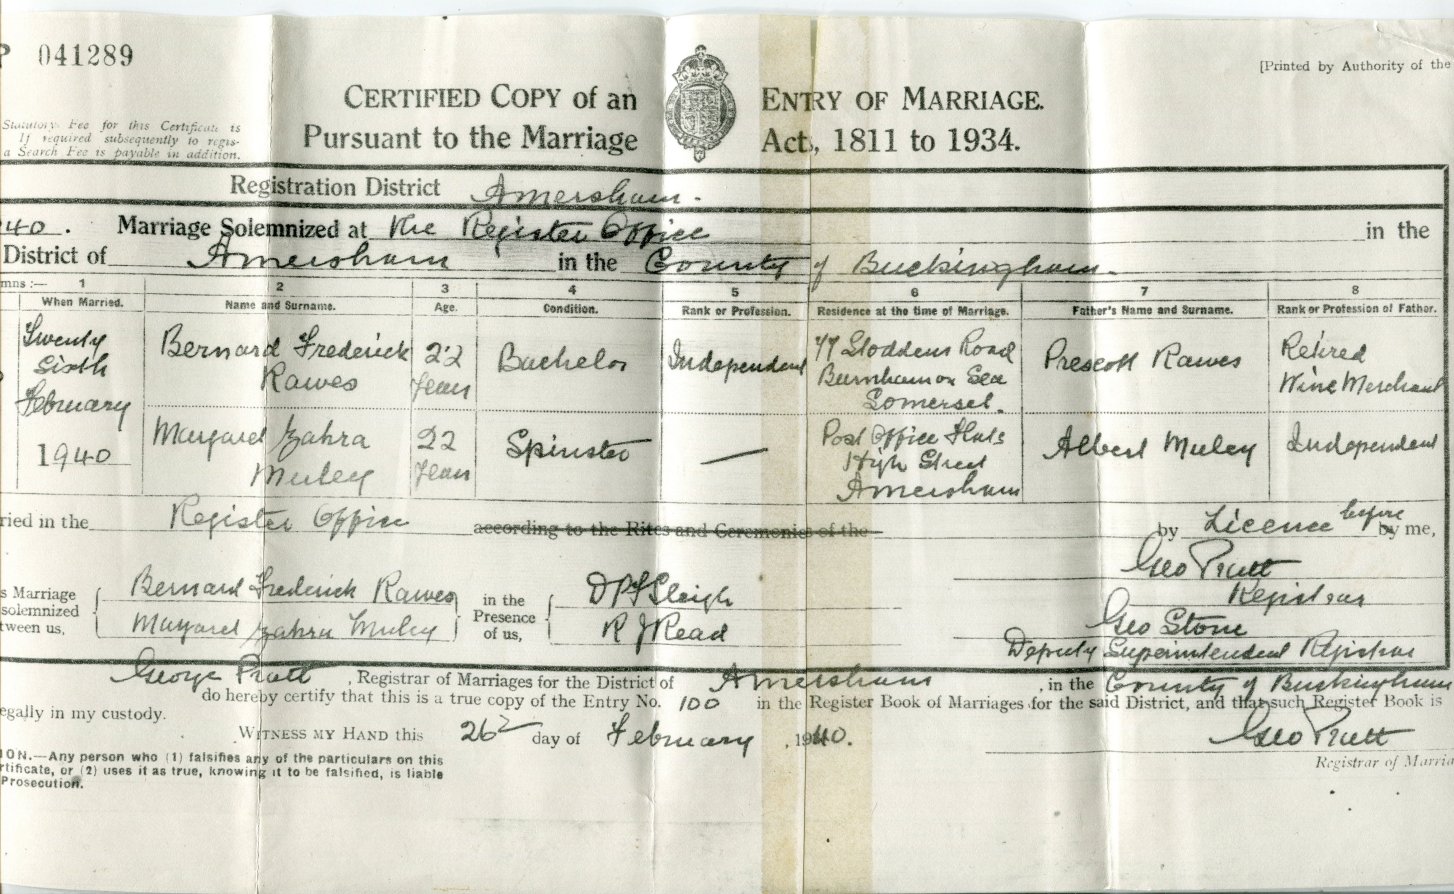 P 041289
[Printed by Authority of the
CERTIFIED COPY of an ENTRY OF MARRIAGE.
Pursuant to the Marriage Acts, 1811 to 1934.
Statutory Fee for this Certificate is
If required subsequently to regis-
a Search Fee is payable in addition.
Registration District Amersham.
40. Marriage Solemnized at The Register Office in the
District of Amersham in the County of Buckingham.
mns :— 1 2 3 4 5 6 7 8
When Married. Name and Surname. Age. Condition. Rank or Profession. Residence at the time of Marriage. Father's Name and Surname. Rank or Profession of Father.
Twenty
Sixth
February
1940
Bernard Frederick
Rawes
22
Years
Bachelor
Independent
Stoddens Road
Burnham on Sea
Somerset.
Prescott Rawes
Retired
Wine Merchant
Margaret Zahra
Muley
22
Years
Spinster
—
Post Office Flats
High Street
Amersham
Albert Muley
Independent
ried in the Register Office according to the Rites and Ceremonies of the by Licence before by me,
s Marriage
solemnized
tween us,
Bernard Frederick Rawes
Margaret Zahra Muley
in the
Presence
of us,
Sleigh
R J Read
Geo Pratt
Registrar
Geo Stone
Deputy Superintendent Registrar
George Pratt, Registrar of Marriages for the District of Amersham, in the County of Buckingham
do hereby certify that this is a true copy of the Entry No. 100 in the Register Book of Marriages for the said District, and that such Register Book is
egally in my custody.
WITNESS MY HAND this 26 day of February, 1940.
Geo Pratt
Registrar of Marria
ION.—Any person who (1) falsifies any of the particulars on this
rtificate, or (2) uses it as true, knowing it to be falsified, is liable
Prosecution.